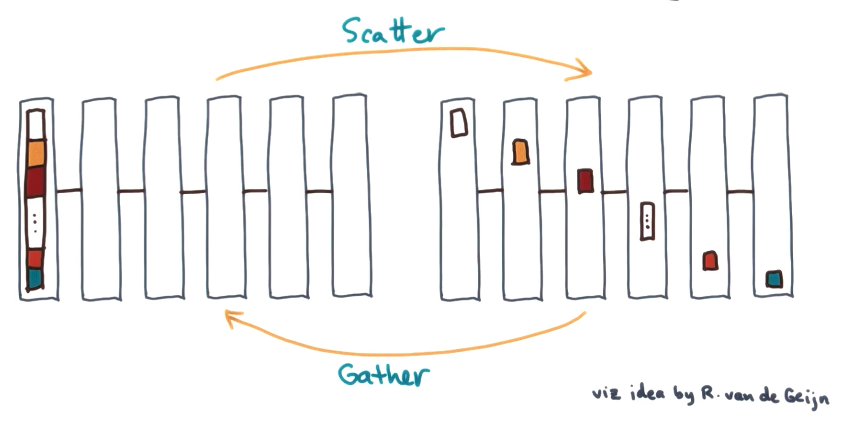 Scatter
Gather
viz idea by R. van de Geijn